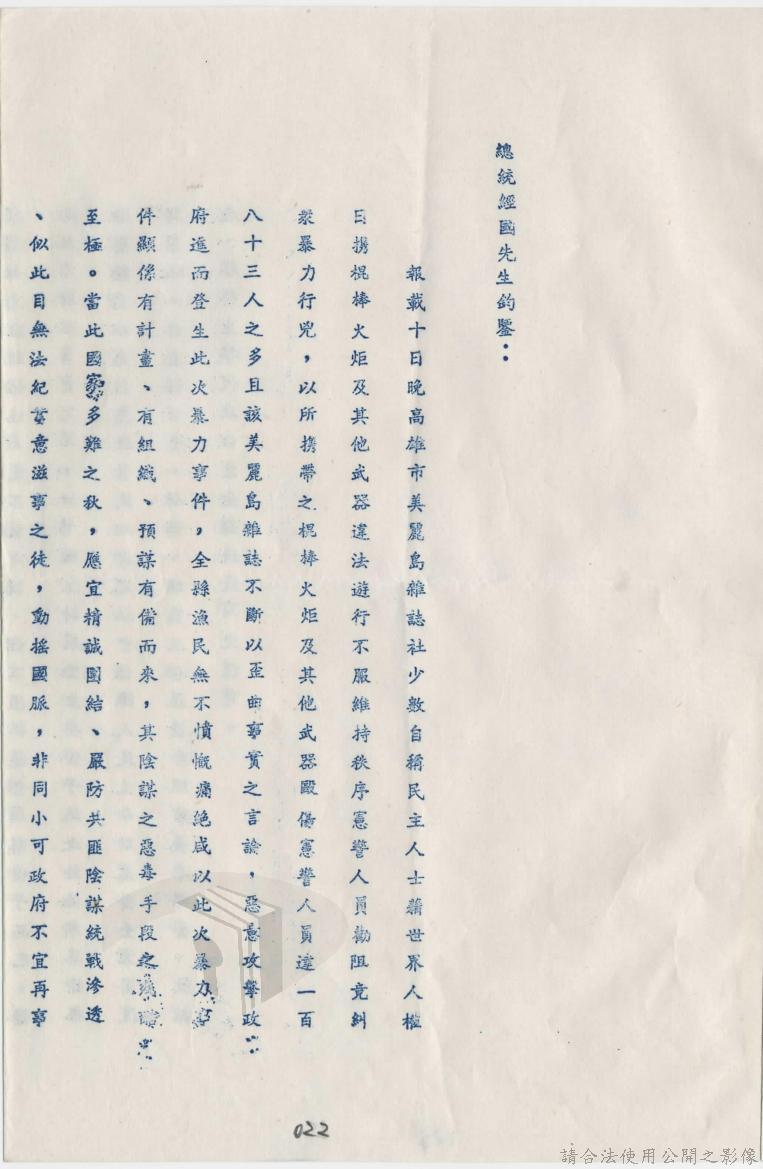 總統經國先生鈞鑒：
報載十日晚高雄市美麗島雜誌社少數自稱民主人士藉世界人權
日携棍棒火炬及其他武器違法遊行不服維持秩序憲警人員勸阻竟糾
衆暴力行兇，以所携帶之棍棒火炬及其他武器毆傷憲警人員達一百
八十三人之多且該美麗島雜誌不斷以歪曲事實之言論，惡意攻擊政
府進而登生此次暴力事件，全縣漁民無不憤慨痛絶咸以此次暴力事
件顯係有計畫、有組織、預謀有備而來，其陰謀之惡毒手段之
至極。當此國家多難之秋，應宜精誠團結、嚴防共匪陰謀統戰滲透
、似此目無法紀蓄意滋事之徒，動搖國脈，非同小可政府不宜再寧
022
請合法使用公開之影像